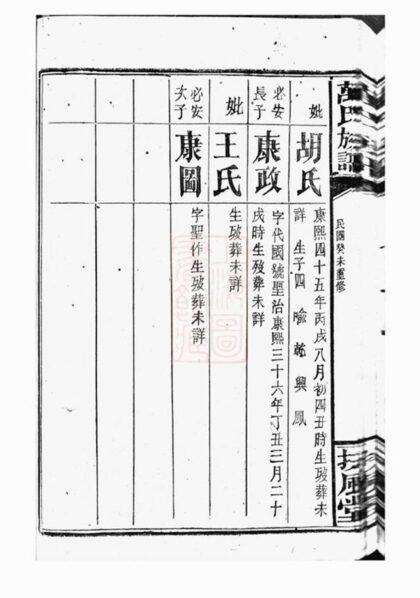 萬氏族譜
民國癸未重修
扶風堂
妣
胡氏
康熙四十五年丙戌八月初四丑時生歿葬未
詳 生子四 乾 興 鳳
必安
長子
康政
字代國號聖治康熙三十六年丁丑三月二十
戌時生歿葬未詳
妣
王氏
生歿葬未詳
必安
次子
康圖
字聖作生歿葬未詳